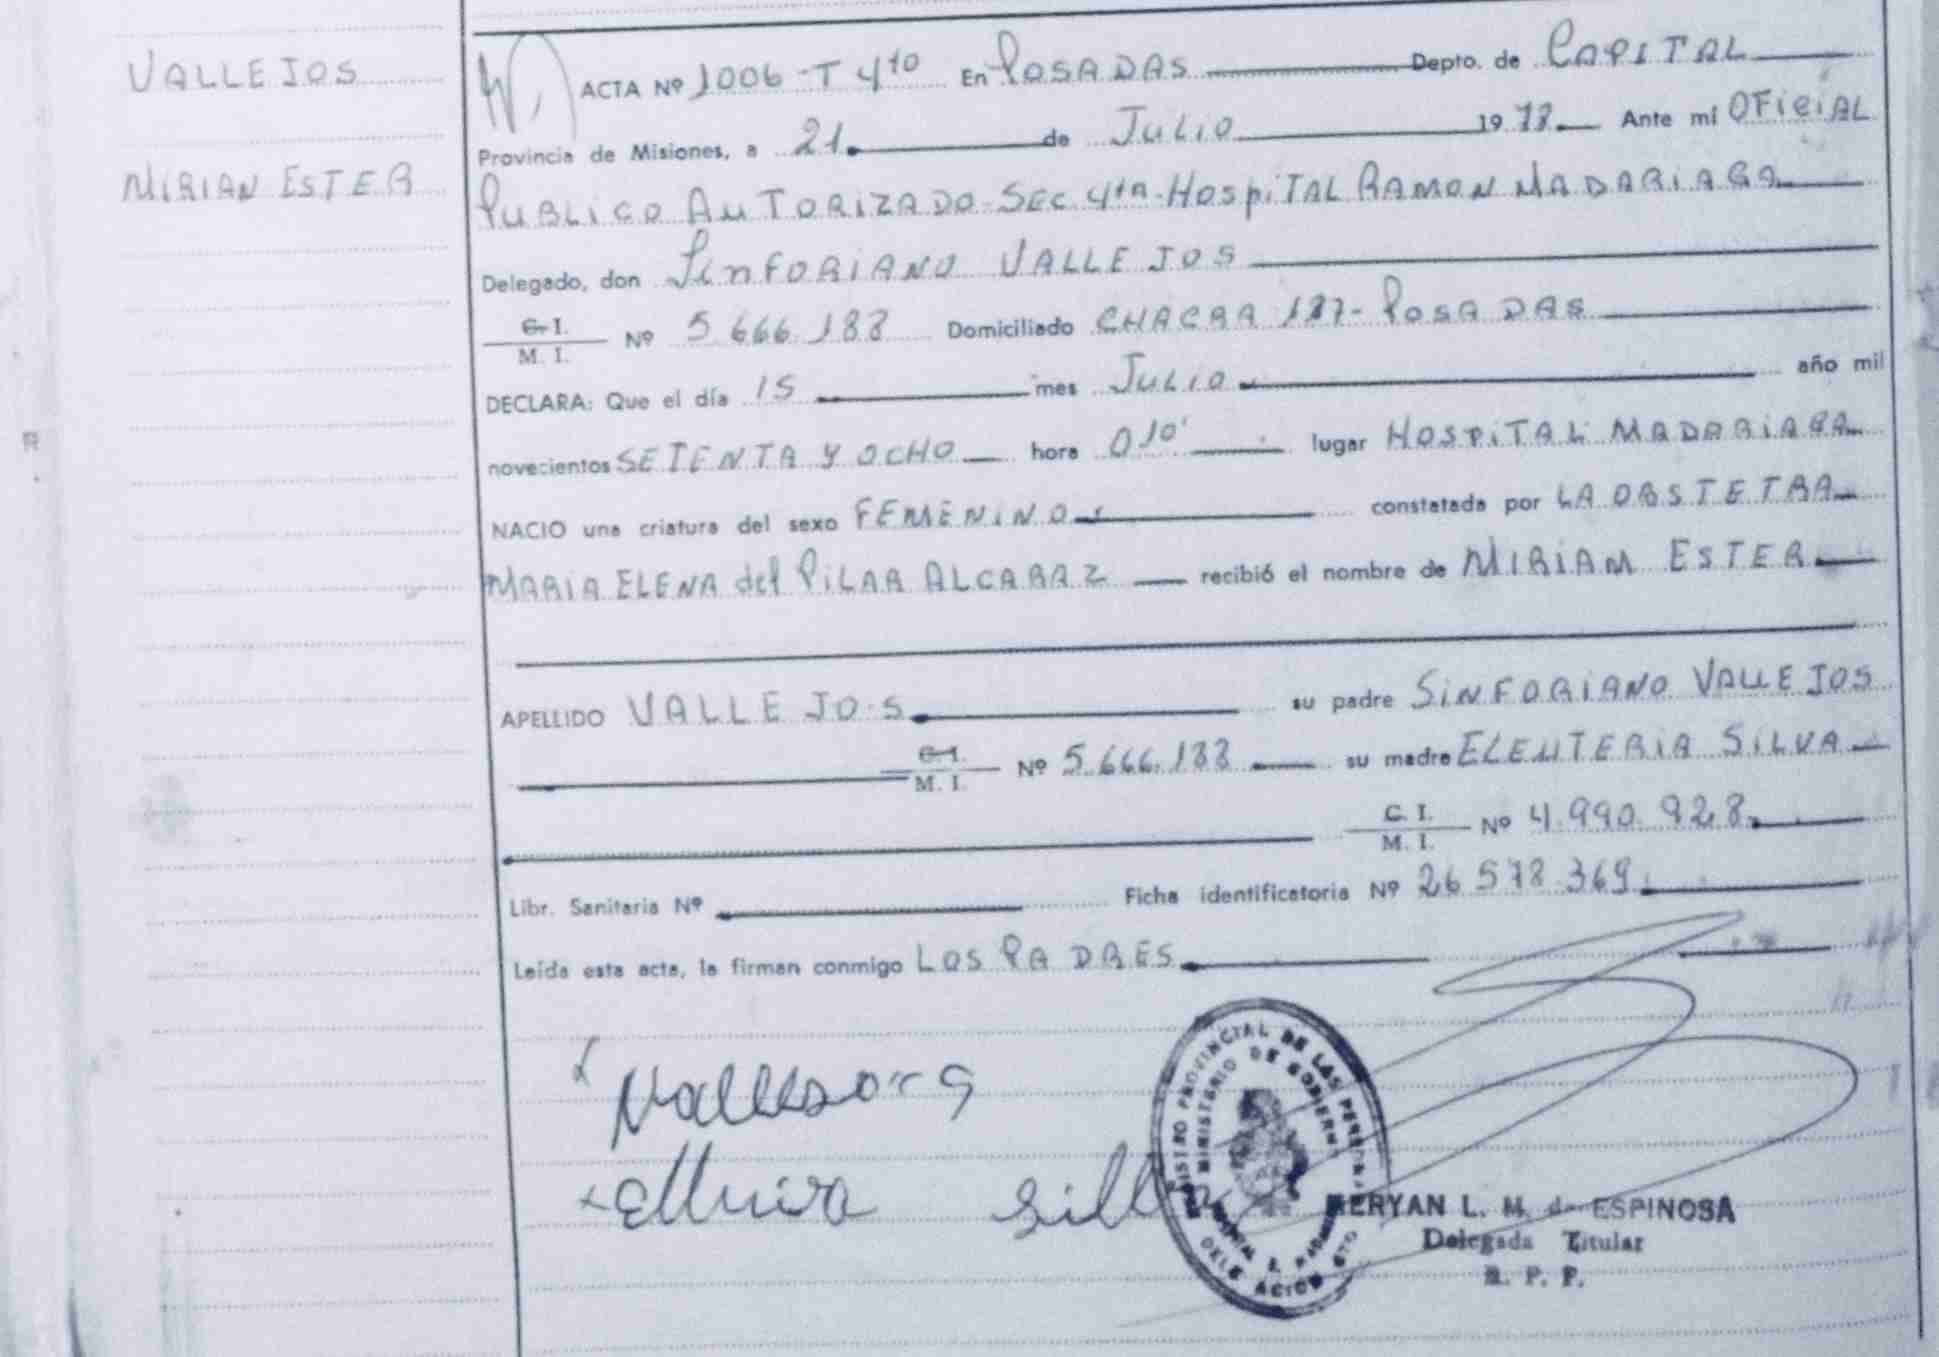 VALLEJOS
MIRIAN ESTER
ACTA Nº 1006-T 4to En POSADAS Depto. de CAPITAL
Provincia de Misiones, a 21 de JULIO 1978 Ante mí OFICIAL
PUBLICO AUTORIZADO-SEC 4ta-HOSPITAL RAMON MADARIAGA
Delegado, don SINFORIANO VALLEJOS
C. I.
M. I. Nº 5.666.188 Domiciliado CHACRA 187-POSADAS
DECLARA: Que el día 15 mes JULIO año mil
novecientos SETENTA Y OCHO hora 0 10' lugar HOSPITAL MADARIAGA
NACIO una criatura del sexo FEMENINO constatada por LA OBSTETRA
MARIA ELENA del PILAR ALCARAZ recibió el nombre de MIRIAM ESTER
APELLIDO VALLEJOS su padre SINFORIANO VALLEJOS
C. I.
M. I. Nº 5.666.188 su madre ELEUTERIA SILVA
C. I.
M. I. Nº 4.990.928
Libr. Sanitaria Nº Ficha identificatoria Nº 26 578 369
Leída esta acta, la firman conmigo LOS PADRES
REGISTRO PROVINCIAL DE LAS PERSONAS
MINISTERIO DE GOBIERNO
MERYAN L. M. de ESPINOSA
Delegada Titular
R. P. P.